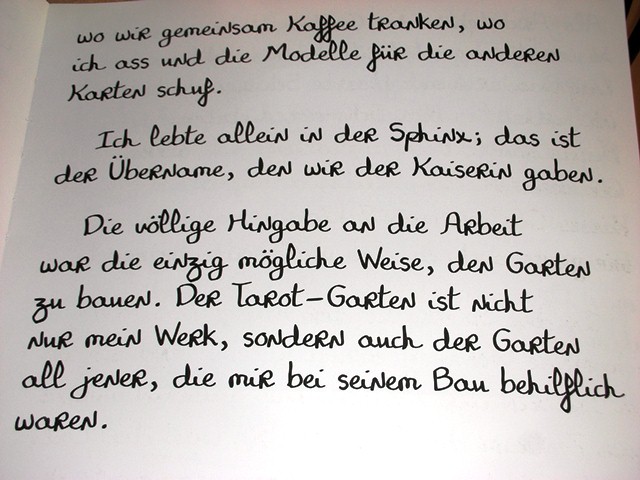 wo wir gemeinsam Kaffee tranken, wo
ich ass und die Modelle für die anderen
Karten schuf.
Ich lebte allein in der Sphinx; das ist
der Übername, den wir der Kaiserin gaben.
Die völlige Hingabe an die Arbeit
war die einzig mögliche Weise, den Garten
zu bauen. Der Tarot-Garten ist nicht
nur mein Werk, sondern auch der Garten
all jener, die mir bei seinem Bau behilflich
waren.